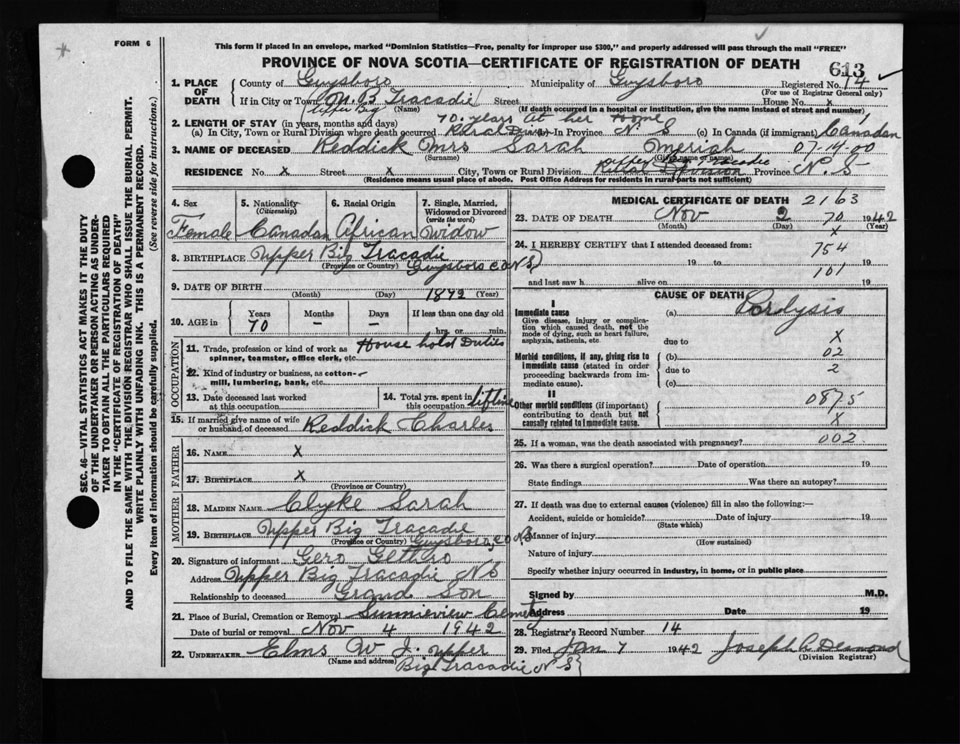 FORM 6
This form if placed in an envelope, marked "Dominion Statistics—Free, penalty for improper use $300," and properly addressed will pass through the mail "FREE"
PROVINCE OF NOVA SCOTIA—CERTIFICATE OF REGISTRATION OF DEATH
613
1. PLACE OF DEATH
County of Guysboro Municipality of Guysboro Registered No. 14
(For use of Registrar General only)
If in City or Town U. B Tracadie Street House No. x
(Upper Big (Name) (If death occurred in a hospital or institution, give the name instead of street and number)
2. LENGTH OF STAY (in years, months and days) 70 years at her home
(a) In City, Town or Rural Division where death occurred Rural Div (b) In Province N. S (c) In Canada (if immigrant) Canadan
3. NAME OF DECEASED Reddick Mrs Sarah Meriah 07-14-00
(Surname) (Given name or names)
RESIDENCE No. x Street x City, Town or Rural Division Upper Big Tracadie Province N. S
(Residence means usual place of abode. Post Office Address for residents in rural parts not sufficient)
4. Sex Female
5. Nationality (Citizenship) Canadan
6. Racial Origin African
7. Single, Married, Widowed or Divorced (write the word) Widow
8. BIRTHPLACE Upper Big Tracadie
(Province or Country) Guysboro CO N S
9. DATE OF BIRTH 1872
(Month) (Day) (Year)
10. AGE in Years 70 Months – Days – If less than one day old hrs. or min.
OCCUPATION
11. Trade, profession or kind of work as spinner, teamster, office clerk, etc. House hold Duties
12. Kind of industry or business, as cotton-mill, lumbering, bank, etc.
13. Date deceased last worked at this occupation
14. Total yrs. spent in this occupation lifetime
15. If married give name of wife or husband of deceased Reddick Charles
FATHER
16. NAME X
17. BIRTHPLACE X
(Province or Country)
MOTHER
18. MAIDEN NAME Clyke Sarah
19. BIRTHPLACE Upper Big Tracadie
(Province or Country) Guysboro, CO N S
20. Signature of informant Gero
Address Upper Big Tracadie N S
Relationship to deceased Grand Son
21. Place of Burial, Cremation or Removal Sunnieview Cemety
Date of burial or removal Nov 4 1942
22. UNDERTAKER Elms W J. upper
(Name and address) Big Tracadie N S
MEDICAL CERTIFICATE OF DEATH 2163
23. DATE OF DEATH Nov 2 70 1942
(Month) (Day) x (Year)
24. I HEREBY CERTIFY that I attended deceased from:
754
19 to 19
101
and last saw h alive on 19
CAUSE OF DEATH
I
Immediate cause
Give disease, injury or complication which caused death, not the mode of dying, such as heart failure, asphyxia, asthenia, etc.
(a) Parlysis
due to X
Morbid conditions, if any, giving rise to immediate cause (stated in order proceeding backwards from immediate cause).
(b) 02
due to 2
(c)
II
Other morbid conditions (if important) contributing to death but not causally related to immediate cause.
0875
X
25. If a woman, was the death associated with pregnancy? 002
26. Was there a surgical operation? Date of operation 19
State findings Was there an autopsy?
27. If death was due to external causes (violence) fill in also the following:
Accident, suicide or homicide? Date of injury 19
(State which)
Manner of injury
(How sustained)
Nature of injury
Specify whether injury occurred in industry, in home, or in public place
Signed by M.D.
Address Date 19
28. Registrar's Record Number 14
29. Filed Jan 7 1942 Joseph A Desmond
(Division Registrar)
SEC. 46—VITAL STATISTICS ACT MAKES IT THE DUTY
OF THE UNDERTAKER OR PERSON ACTING AS UNDER-
TAKER TO OBTAIN ALL THE PARTICULARS REQUIRED
IN THE "CERTIFICATE OF REGISTRATION OF DEATH"
AND TO FILE THE SAME WITH THE DIVISION REGISTRAR WHO SHALL ISSUE THE BURIAL PERMIT.
WRITE PLAINLY WITH UNFADING INK. THIS IS A PERMANENT RECORD.
Every item of information should be carefully supplied. (See reverse side for instructions.)